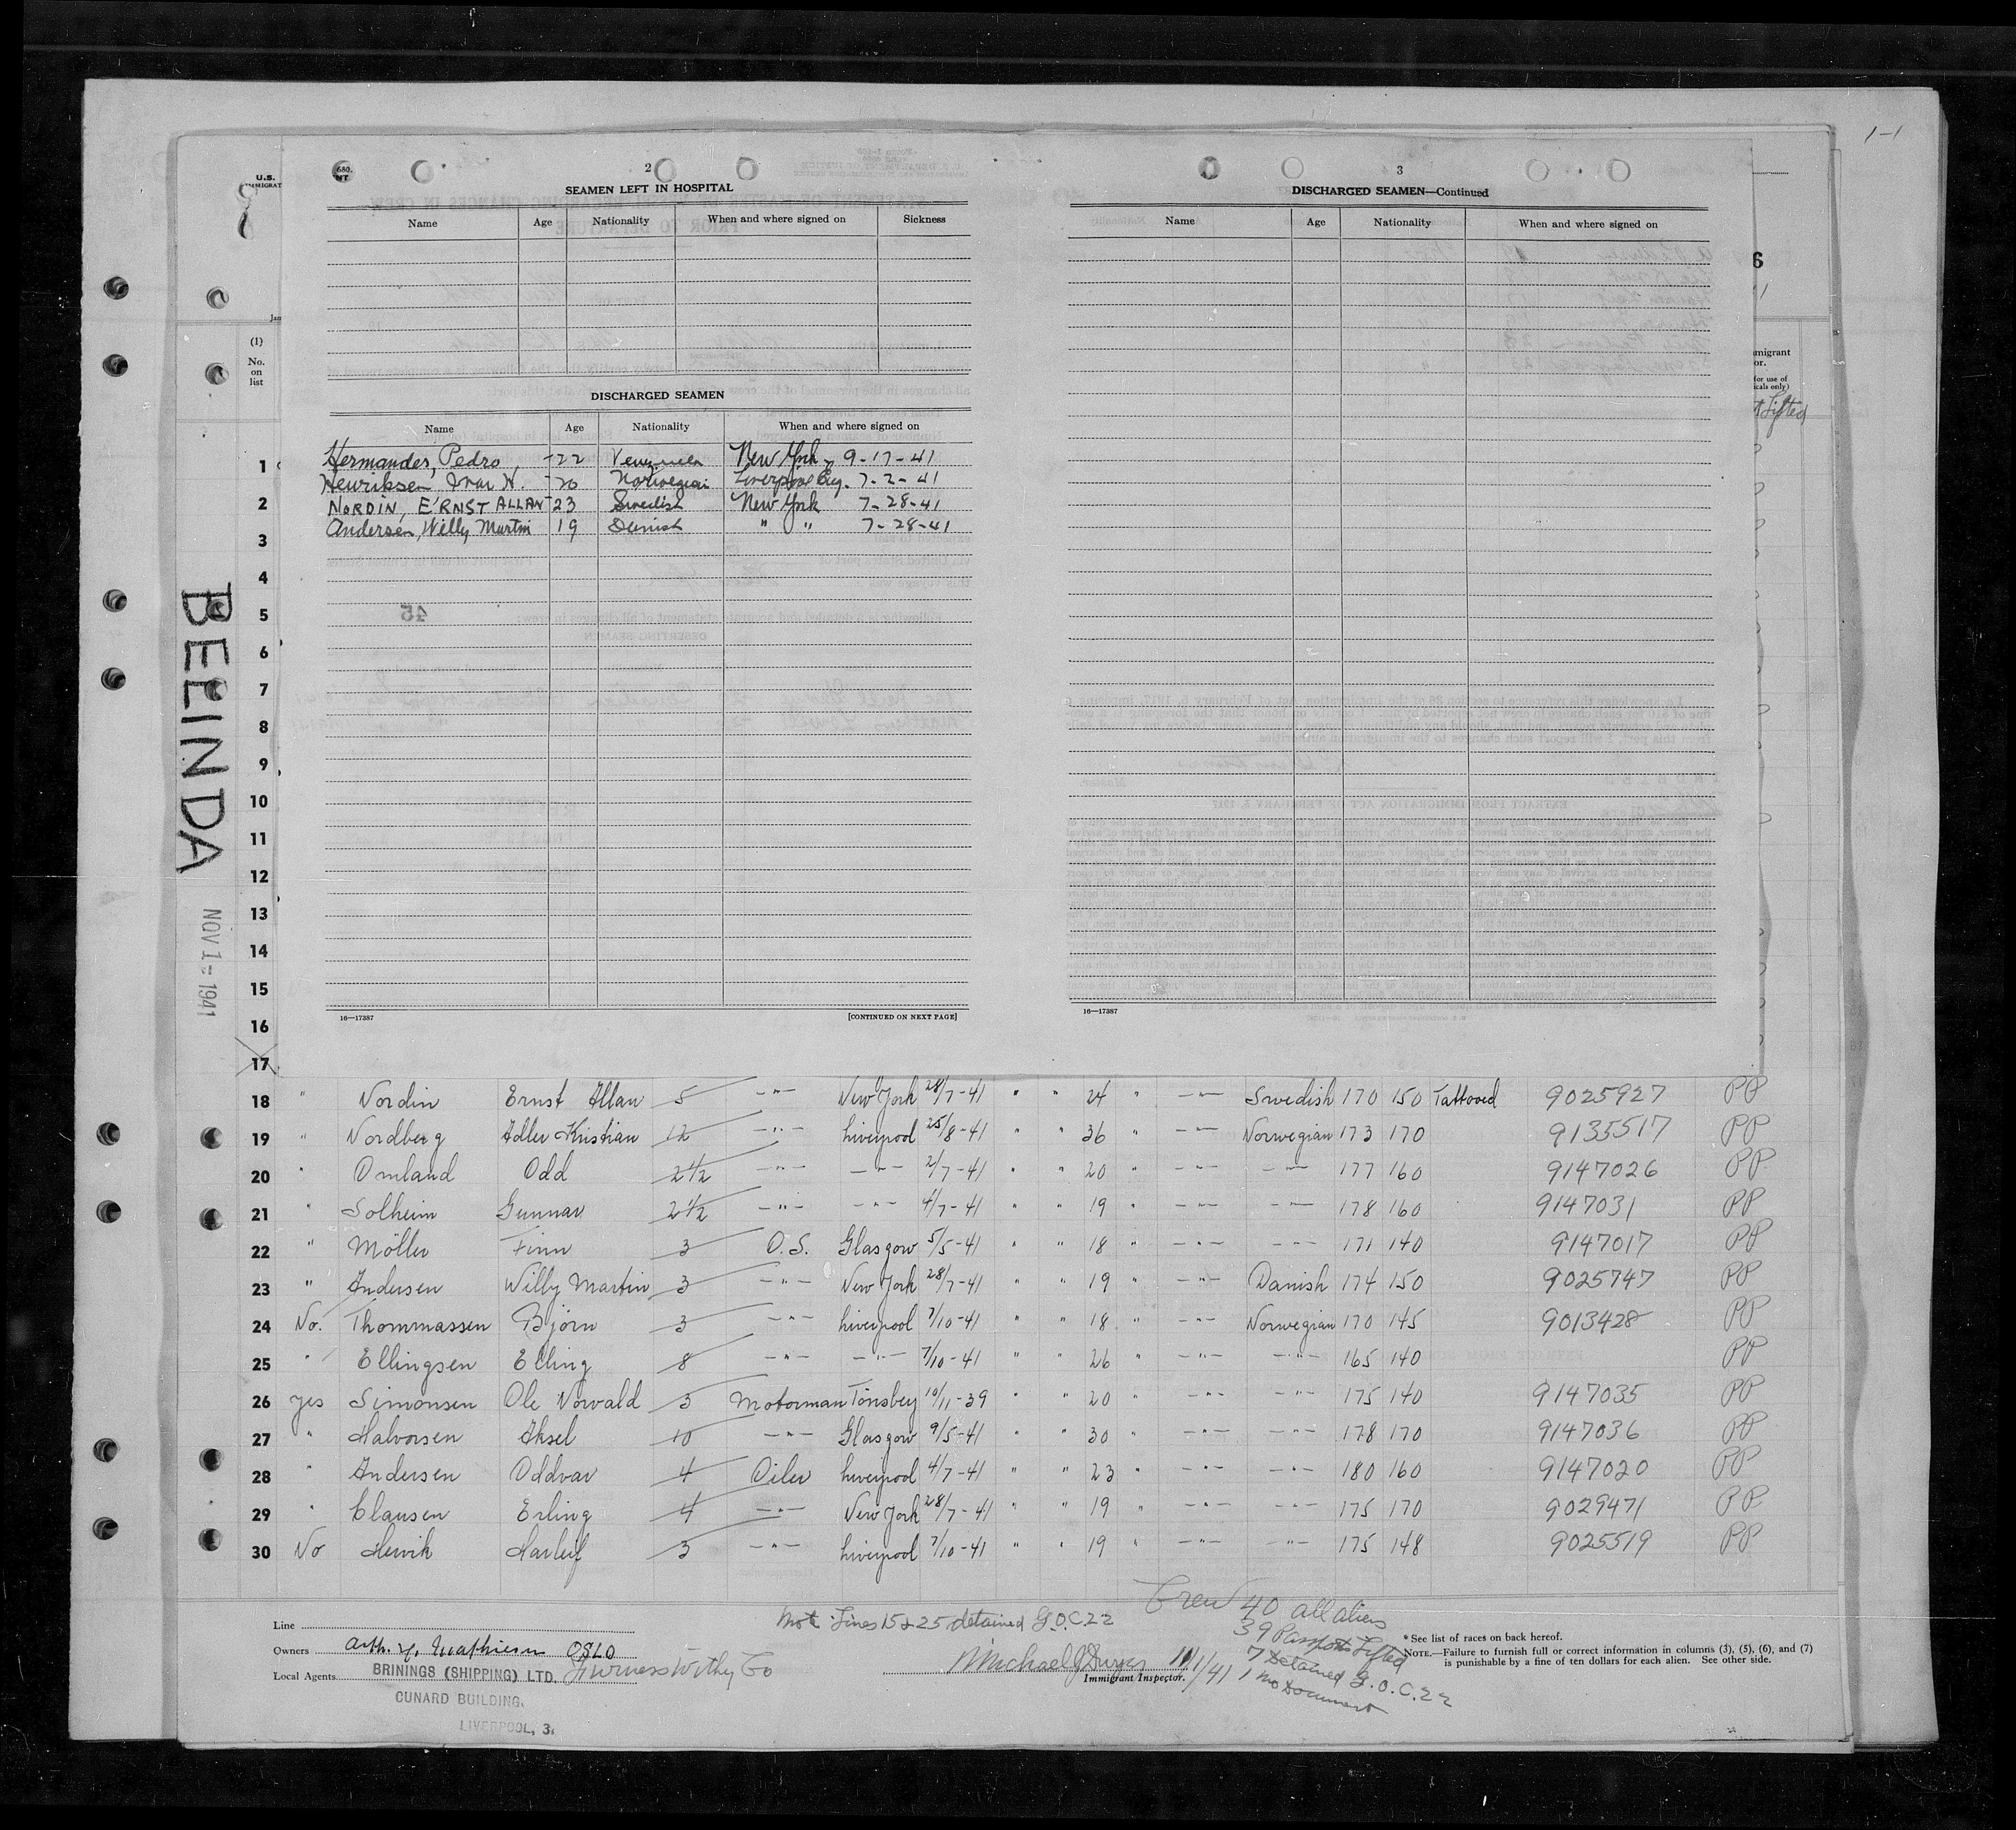 1-1
U.S.
680.
NT
2
SEAMEN LEFT IN HOSPITAL
Name Age Nationality When and where signed on Sickness
DISCHARGED SEAMEN
Name Age Nationality When and where signed on
Hermander, Pedro, -22 Venezuela New York - 9-17-41
Henriksen Ivar H. -20 Norwegian Liverpool Eng. 7-2-41
NORDIN, ERNST ALLAN 23 Swedish New York 7-28-41
Andersen, Willy Martin 19 Danish " " 7-28-41
16—17387 [CONTINUED ON NEXT PAGE]
3
DISCHARGED SEAMEN—Continued
Name Age Nationality When and where signed on
16—17387
(1)
No.
on
list
BELINDA
NOV 1 - 1941
1
2
3
4
5
6
7
8
9
10
11
12
13
14
15
16
17
18 " Nordin Ernst Allan 5 -"- New York 28/7-41 " " 24 " -"- Swedish 170 150 Tattooed 9025927 PP
19 " Nordberg Adler Kristian 12 -"- Liverpool 25/8-41 " " 36 " -"- Norwegian 173 170 9135517 PP
20 " Omland Odd 2 1/2 -"- -"- 2/7-41 " " 20 " -"- -"- 177 160 9147026 PP
21 " Solheim Gunnar 2 1/2 -"- -"- 4/7-41 " " 19 " -"- -"- 178 160 9147031 PP
22 " Möller Finn 3 O.S. Glasgow 5/5-41 " " 18 " -"- -"- 171 140 9147017 PP
23 " Andersen Willy Martin 3 -"- New York 28/7-41 " " 19 " -"- Danish 174 150 9025747 PP
24 No. Thommassen Björn 3 -"- Liverpool 7/10-41 " " 18 " -"- Norwegian 170 145 9013428 PP
25 " Ellingsen Elling 8 -"- -"- 7/10-41 " " 26 " -"- -"- 165 140 PP
26 yes Simonsen Ole Norvald 3 Motorman Tönsberg 10/11-39 " " 20 -"- -"- 175 140 9147035 PP
27 " Halvorsen Aksel 10 -"- Glasgow 9/5-41 " " 30 " -"- -"- 178 170 9147036 PP
28 " Andersen Oddvar 4 Oiler Liverpool 4/7-41 " " 23 " -"- -"- 180 160 9147020 PP
29 " Clausen Erling 4 -"- New York 28/7-41 " " 19 " -"- -"- 175 170 9029471 PP
30 No Henrik Harleif 3 -"- Liverpool 7/10-41 " " 19 " -"- -"- 175 148 9025519 PP
Line
Owners Arth. H. Mathiesen OSLO
Local Agents BRININGS (SHIPPING) LTD. Furness Withy Co
CUNARD BUILDING,
LIVERPOOL, 3.
Not Lines 15 & 25 detained G.O.C.22
11/1/41
Immigrant Inspector.
Crew 40 all aliens
39 Passports Lifted
7 Detained G.O.C.22
1 no Document
*See list of races on back hereof.
NOTE.—Failure to furnish full or correct information in columns (3), (5), (6), and (7)
is punishable by a fine of ten dollars for each alien. See other side.